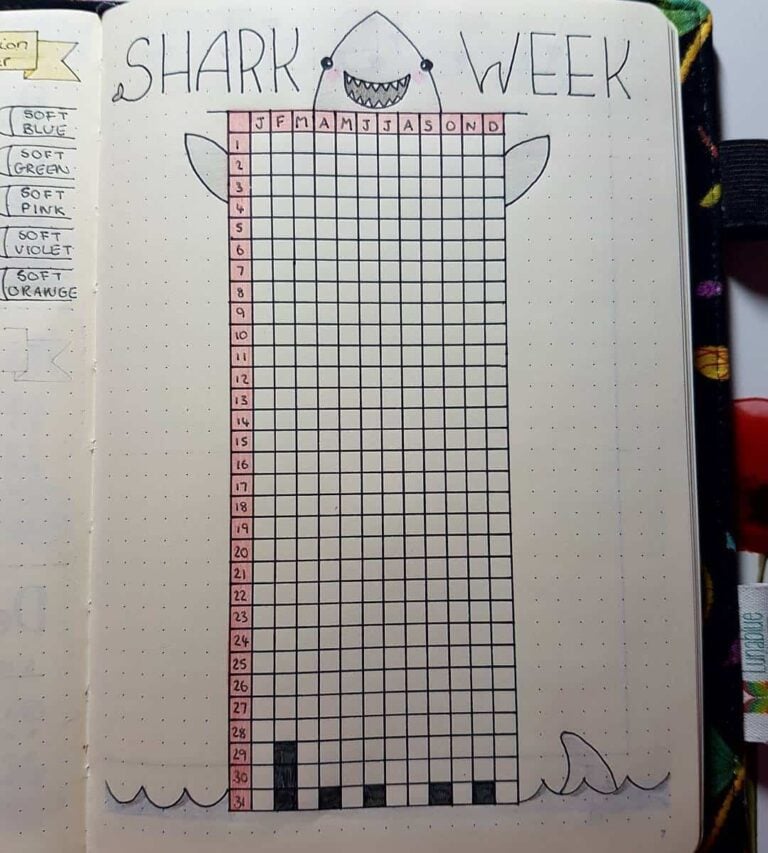 SHARK WEEK
J F M A M J J A S O N D
1
2
3
4
5
6
7
8
9
10
11
12
13
14
15
16
17
18
19
20
21
22
23
24
25
26
27
28
29
30
31
7
SOFT
BLUE
SOFT
GREEN
SOFT
PINK
SOFT
VIOLET
SOFT
ORANGE
Lunablue